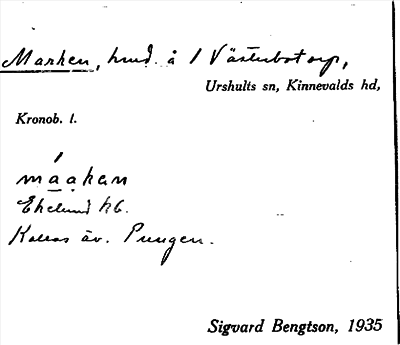 Marken, hmd. å 1 Västerbotorp,
Urshults sn, Kinnevalds hd,
Kronob. l.
máaken
Ekelund kb.
Kallas äv. Pungen.
Sigvard Bengtson, 1935